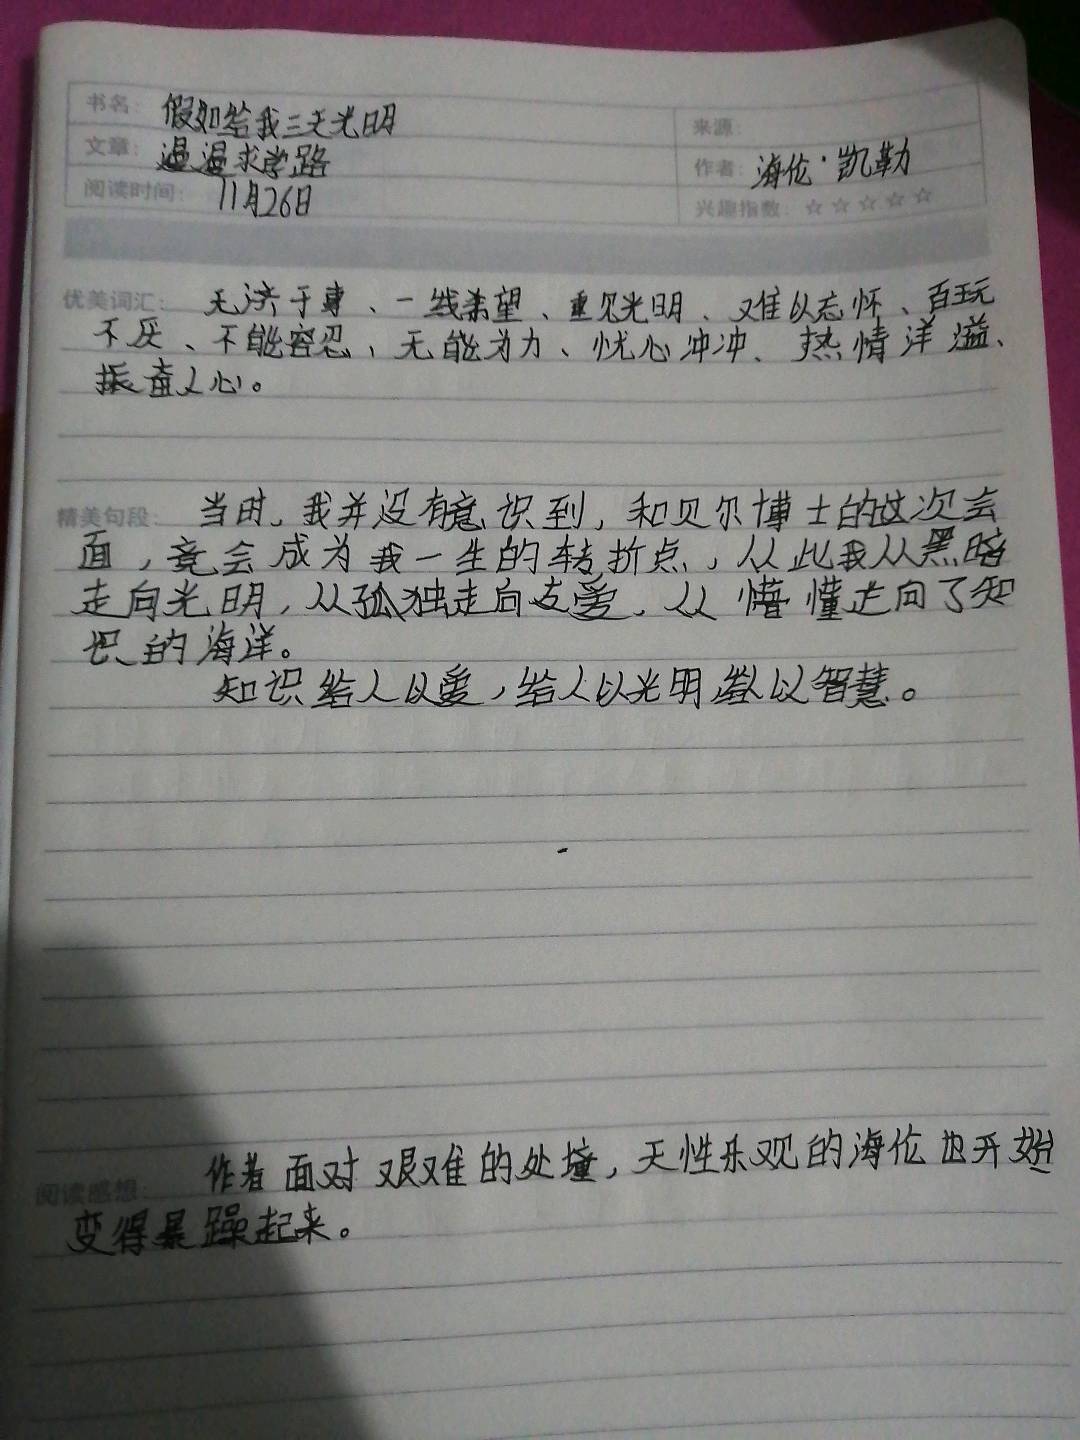 书名：假如给我三天光明
来源：
文章：漫漫求学路
作者：海伦·凯勒
阅读时间：11月26日
兴趣指数：☆☆☆☆☆
优美词汇：无济于事、一线希望、重见光明、难以忘怀、百玩
不厌、不能容忍，无能为力、忧心冲冲、热情洋溢、
振奋人心。
精美句段：当时，我并没有意识到，和贝尔博士的这次会
面，竟会成为我一生的转折点，从此我从黑暗
走向光明，从孤独走向友爱，从懵懂走向了知
识的海洋。
知识给人以爱，给人以光明给人以智慧。
阅读感想：作者面对艰难的处境，天性乐观的海伦也开始
变得暴躁起来。